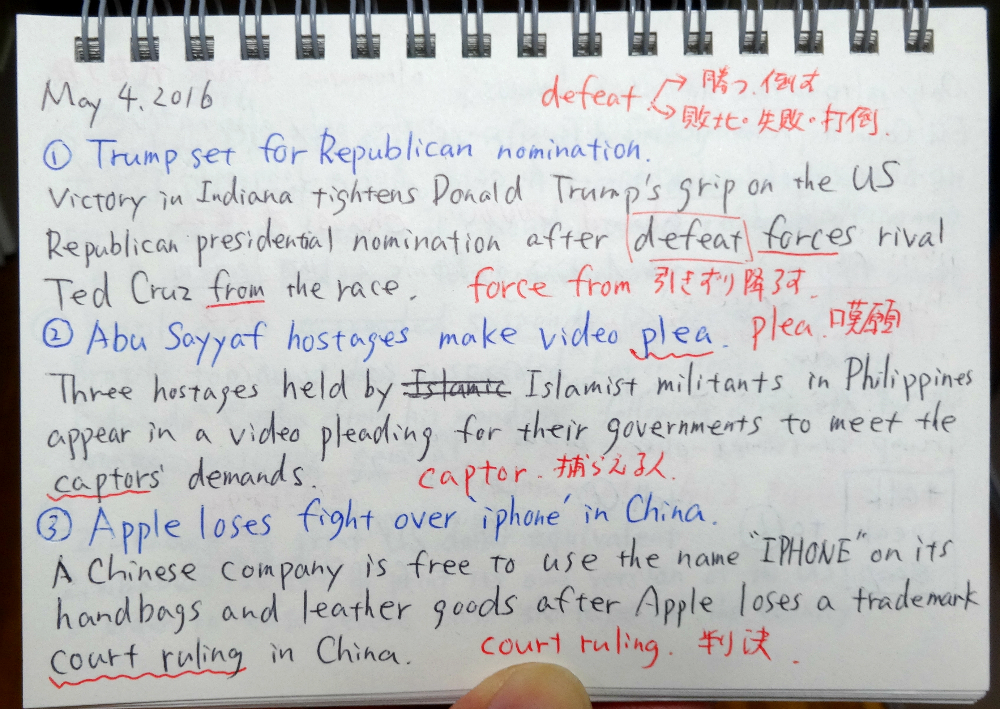 May 4, 2016
defeat → 勝つ、倒す
→ 敗北・失敗・打倒.
① Trump set for Republican nomination.
Victory in Indiana tightens Donald Trump's grip on the US
Republican presidential nomination after defeat forces rival
Ted Cruz from the race. force from 引きずり降ろす.
② Abu Sayyaf hostages make video plea. plea. 嘆願
Three hostages held by Islamic Islamist militants in Philippines
appear in a video pleading for their governments to meet the
captors' demands. captor. 捕らえる人.
③ Apple loses fight over 'iphone' in China.
A Chinese company is free to use the name "IPHONE" on its
handbags and leather goods after Apple loses a trademark
court ruling in China. court ruling. 判決.